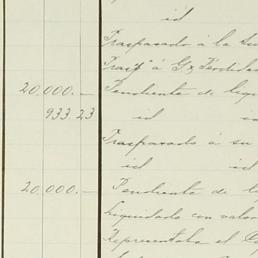 id
Traspasado á la
Trasp° á G. y Pérdidas
20,000.— Pendiente de liqu
933 23 id
Traspasado á su
id id
20,000.— Pendiente de l
Liquidado con valor
Representaba el